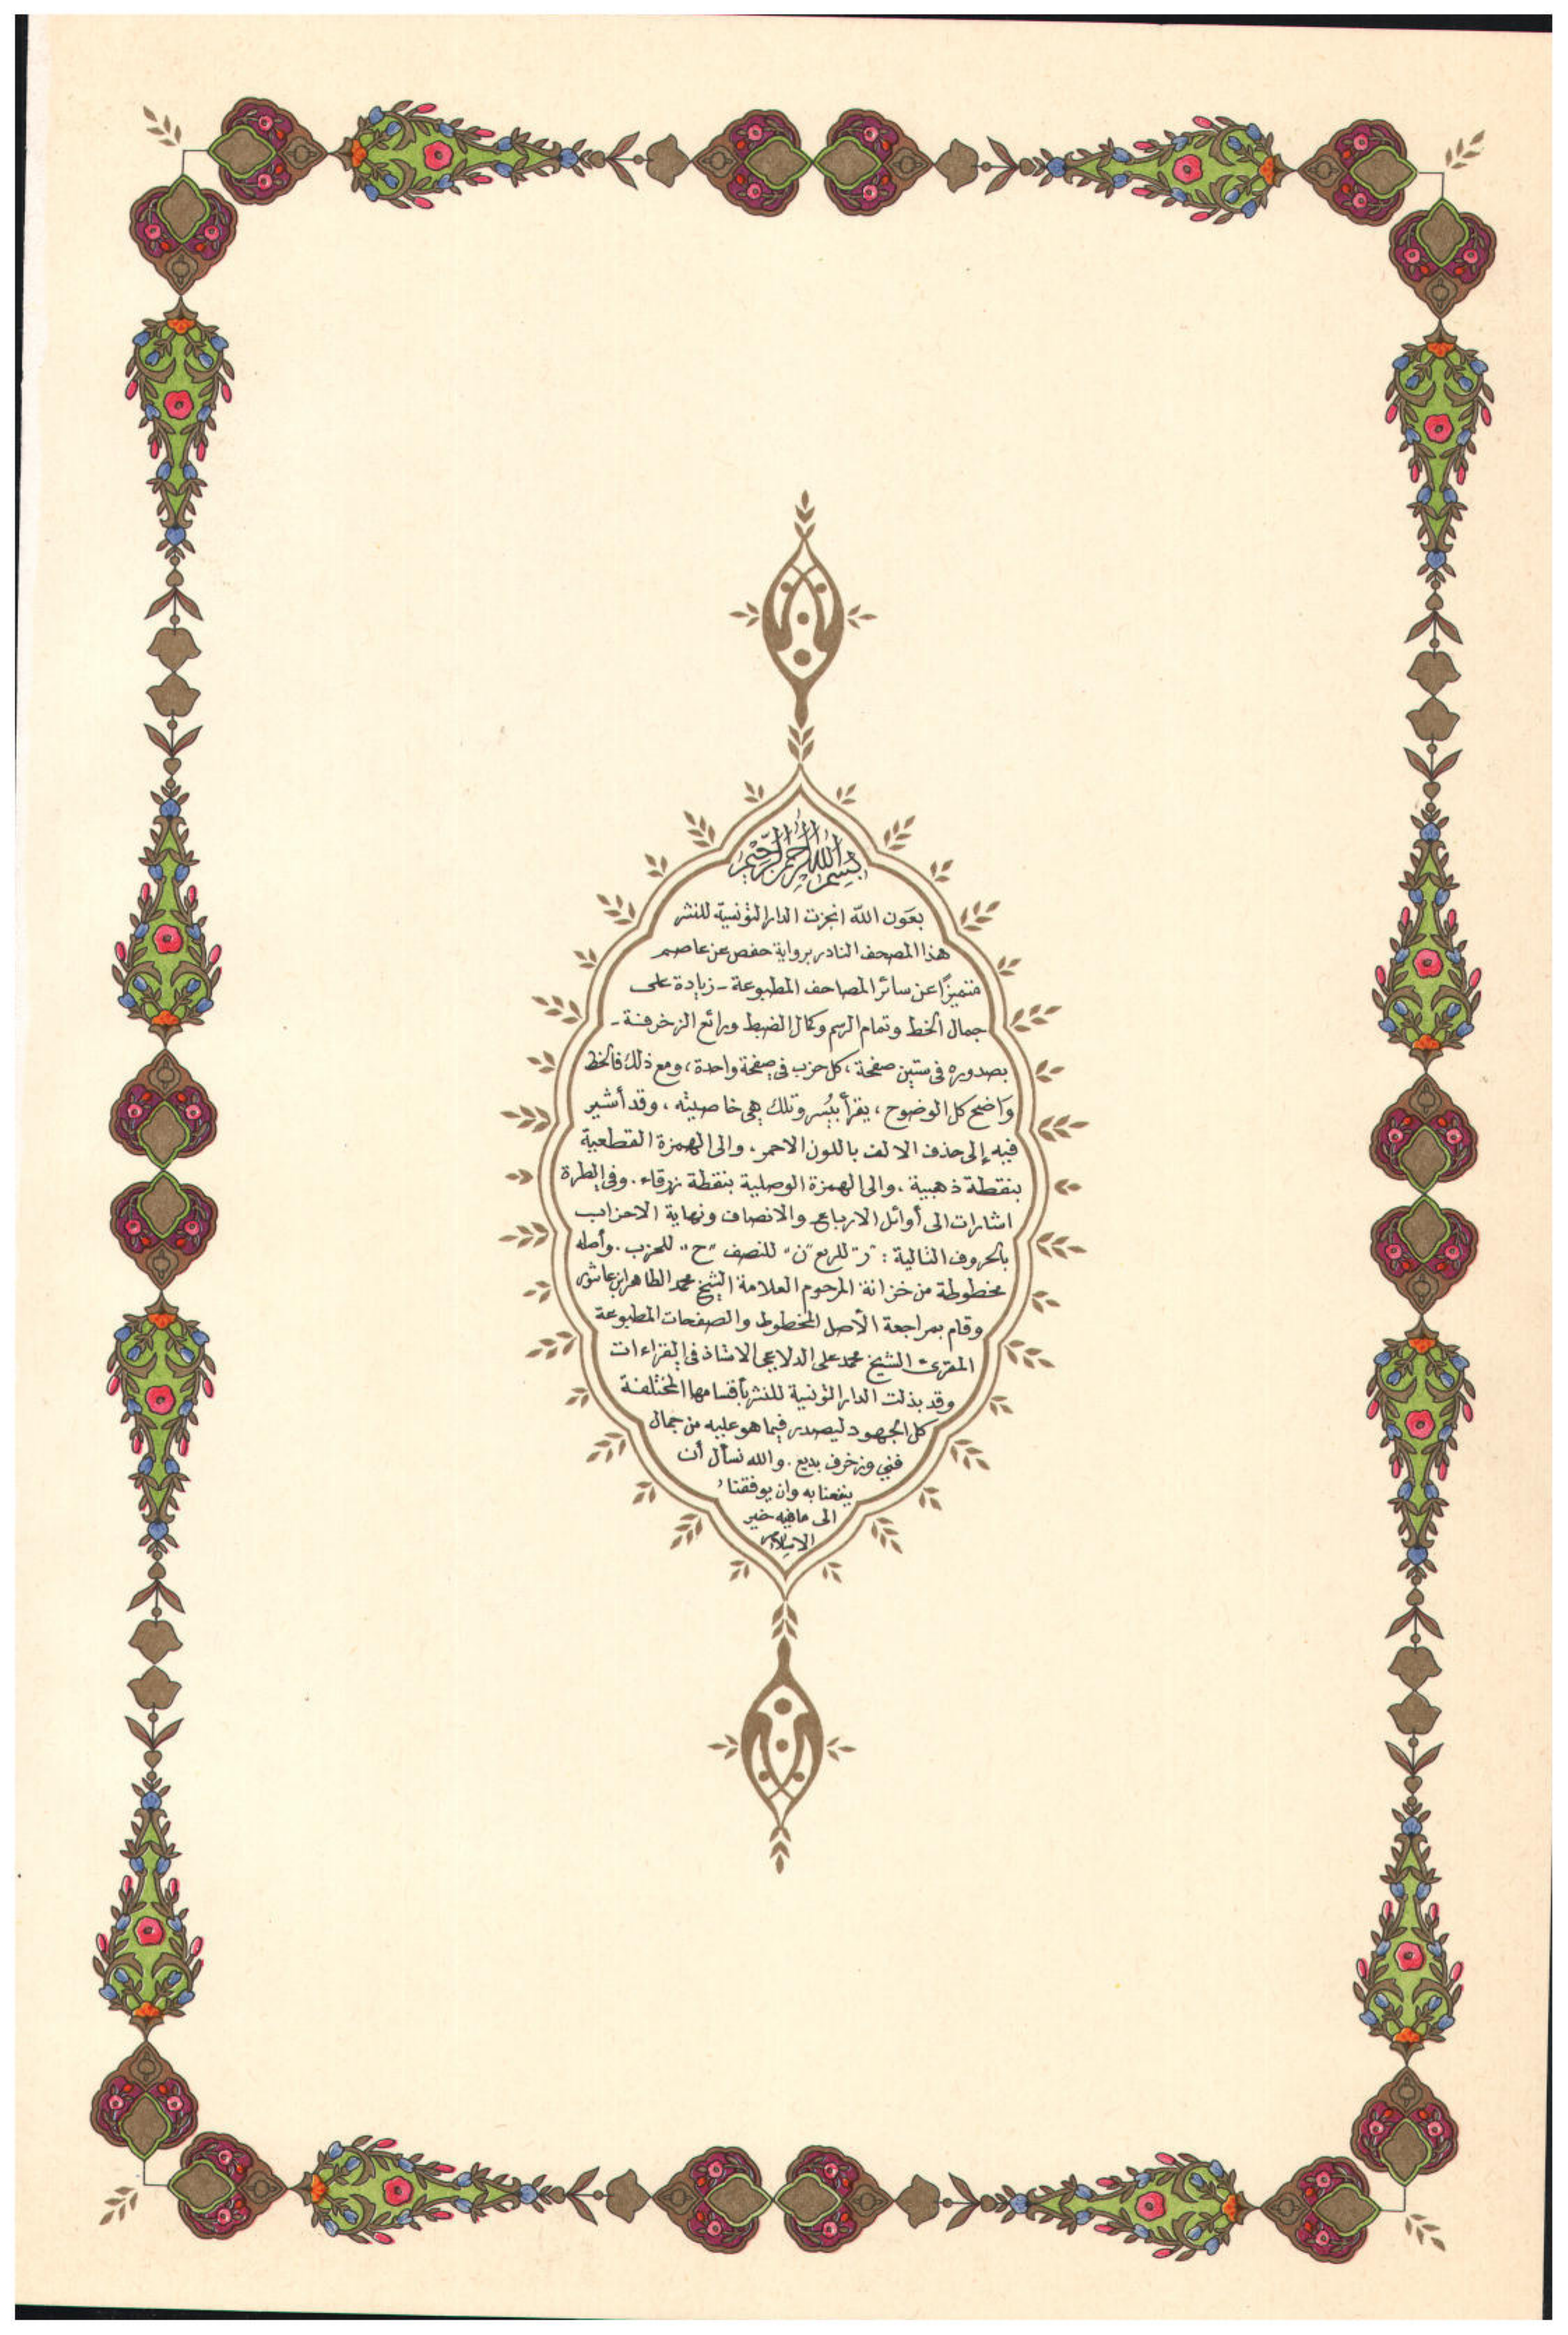 بسم الله الرحمن الرحيم
بعون الله انجزت الدار التونسية للنشر
هذا المصحف النادر برواية حفص عن عاصم
متميزًا عن سائر المصاحف المطبوعة - زيادة على
جمال الخط وتمام الرسم وكمال الضبط ورائع الزخرفة -
بصدوره في ستين صفحة، كل حزب في صفحة واحدة، ومع ذلك فالخط
واضح كل الوضوح، يقرأ بيُسر وتلك هي خاصيته، وقد أشير
فيه إلى حذف الالف باللون الاحمر، والى الهمزة القطعية
بنقطة ذهبية، والى الهمزة الوصلية بنقطة زرقاء. وفي الطرة
اشارات الى أوائل الارباع والانصاف ونهاية الاحزاب
بالحروف التالية: "ر" للربع "ن" للنصف "ح" للحزب. وأصله
مخطوطة من خزانة المرحوم العلامة الشيخ محمد الطاهر ابن عاشور
وقام بمراجعة الأصل المخطوط والصفحات المطبوعة
المقرئ الشيخ محمد علي الدلاعي الاستاذ في القراءات
وقد بذلت الدار التونسية للنشر بأقسامها المختلفة
كل الجهود ليصدر فيما هو عليه من جمال
فني وزخرف بديع. والله نسأل أن
ينفعنا به وان يوفقنا
الى ما فيه خير
الاسلام